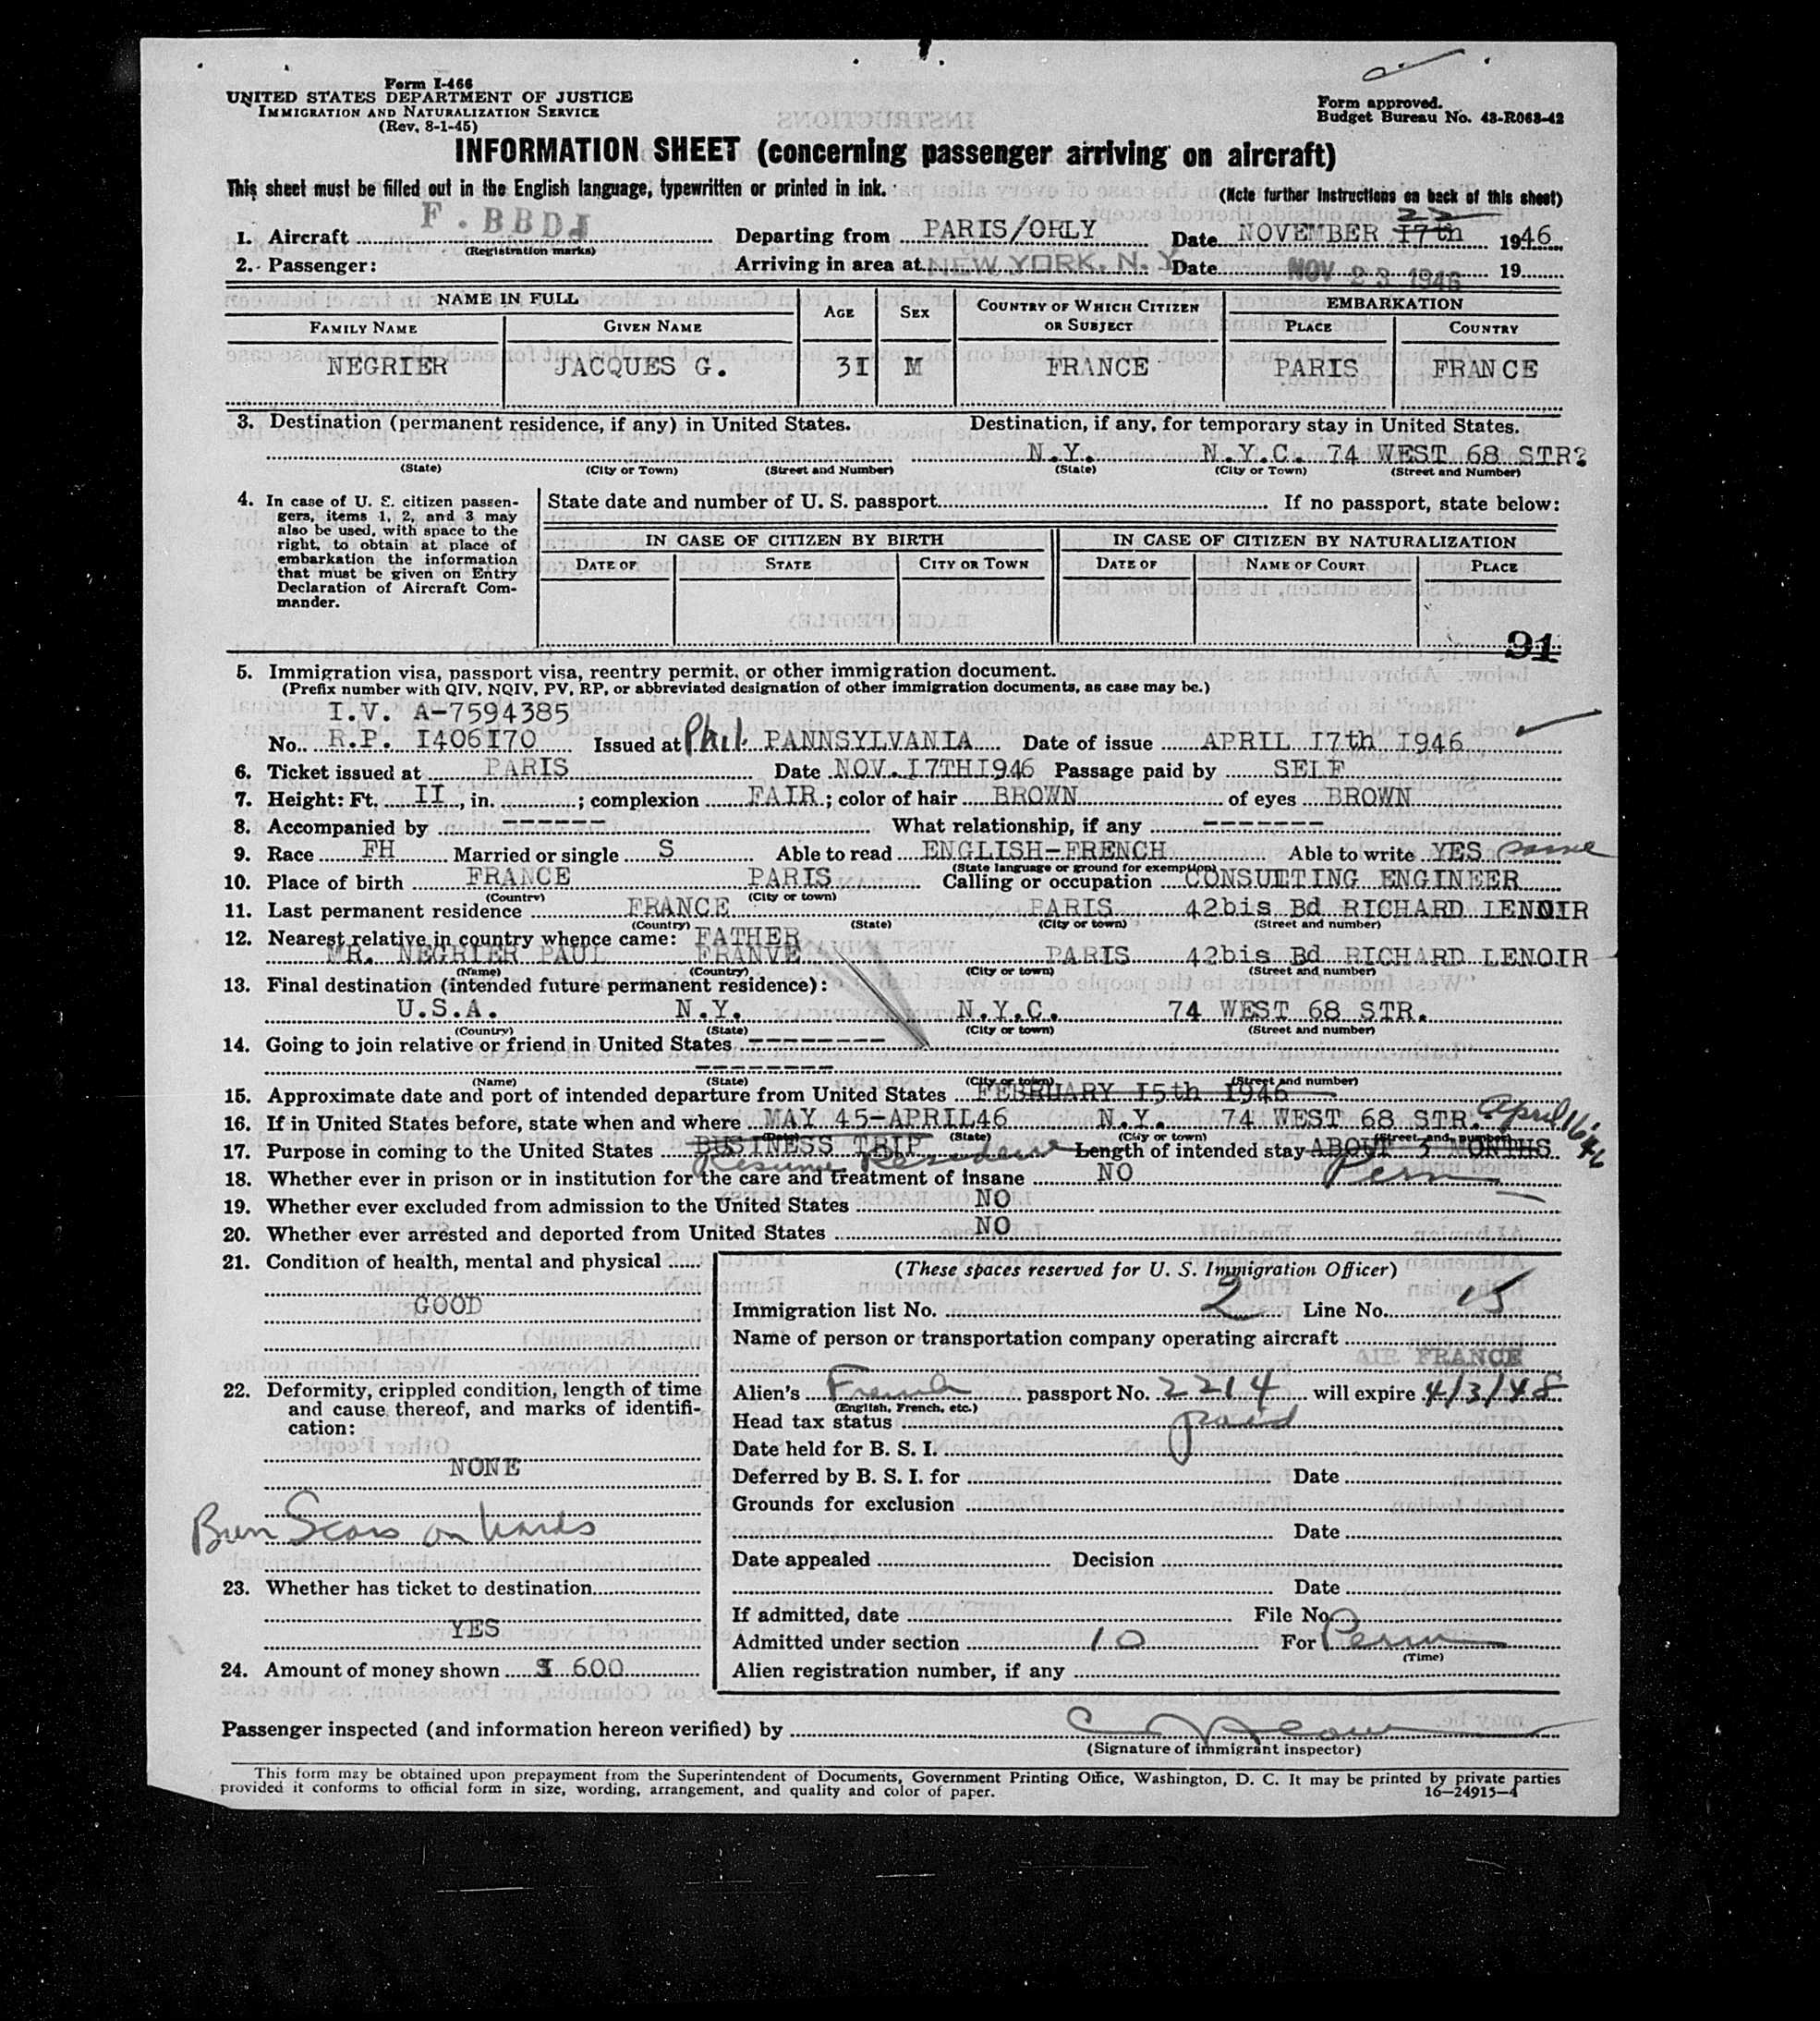 Form I-466
UNITED STATES DEPARTMENT OF JUSTICE
IMMIGRATION AND NATURALIZATION SERVICE
(Rev. 8-1-45)
Form approved.
Budget Bureau No. 43-R068-42
INFORMATION SHEET (concerning passenger arriving on aircraft)
This sheet must be filled out in the English language, typewritten or printed in ink.
(Note further instructions on back of this sheet)
22
1. Aircraft F.BBDJ Departing from PARIS/ORLY Date NOVEMBER I7th 1946
(Registration marks)
2. Passenger: Arriving in area at NEW YORK, N. Y. Date NOV 23 1946 19
NAME IN FULL AGE SEX COUNTRY OF WHICH CITIZEN OR SUBJECT EMBARKATION
FAMILY NAME GIVEN NAME PLACE COUNTRY
NEGRIER JACQUES G. 3I M FRANCE PARIS FRANCE
3. Destination (permanent residence, if any) in United States. Destination, if any, for temporary stay in United States.
N.Y. N.Y.C. 74 WEST 68 STR?
(State) (City or Town) (Street and Number) (State) (City or Town) (Street and Number)
4. In case of U. S. citizen passen-
gers, items 1, 2, and 3 may
also be used, with space to the
right, to obtain at place of
embarkation the information
that must be given on Entry
Declaration of Aircraft Com-
mander.
State date and number of U. S. passport If no passport, state below:
IN CASE OF CITIZEN BY BIRTH IN CASE OF CITIZEN BY NATURALIZATION
DATE OF STATE CITY OR TOWN DATE OF NAME OF COURT PLACE
91
5. Immigration visa, passport visa, reentry permit, or other immigration document.
(Prefix number with QIV, NQIV, PV, RP, or abbreviated designation of other immigration documents, as case may be.)
I.V. A-7594385
No. R.P. I406I70 Issued at Phil. PANNSYLVANIA Date of issue APRIL I7th I946
6. Ticket issued at PARIS Date NOV.I7THI946 Passage paid by SELF
7. Height: Ft. II, in. ; complexion FAIR; color of hair BROWN of eyes BROWN
8. Accompanied by ------ What relationship, if any -------
9. Race FH Married or single S Able to read ENGLISH-FRENCH Able to write YES same
(State language or ground for exemption)
10. Place of birth FRANCE PARIS Calling or occupation CONSULTING ENGINEER
(Country) (City or town)
11. Last permanent residence FRANCE PARIS 42bis Bd RICHARD LENOIR
(Country) (State) (City or town) (Street and number)
12. Nearest relative in country whence came: FATHER
MR. NEGRIER PAUL FRANVE PARIS 42bis Bd RICHARD LENOIR
(Name) (Country) (City or town) (Street and number)
13. Final destination (intended future permanent residence):
U.S.A. N.Y. N.Y.C. 74 WEST 68 STR.
(Country) (State) (City or town) (Street and number)
14. Going to join relative or friend in United States --------
--------
(Name) (State) (City or town) (Street and number)
15. Approximate date and port of intended departure from United States FEBRUARY I5th I946
16. If in United States before, state when and where MAY 45-APRIL46 N.Y. 74 WEST 68 STR. April 16 '46
(Date) (State) (City or town) (Street and number)
17. Purpose in coming to the United States BUSINESS TRIP Length of intended stay ABOUT 3 MONTHS
Resume Residence Perm
18. Whether ever in prison or in institution for the care and treatment of insane NO
19. Whether ever excluded from admission to the United States NO
20. Whether ever arrested and deported from United States NO
21. Condition of health, mental and physical
GOOD
22. Deformity, crippled condition, length of time
and cause thereof, and marks of identifi-
cation:
NONE
Burn Scars on hands
23. Whether has ticket to destination
YES
24. Amount of money shown $ 600
(These spaces reserved for U. S. Immigration Officer)
Immigration list No. 2 Line No. 15
Name of person or transportation company operating aircraft
AIR FRANCE
Alien's French passport No. 2214 will expire 4/3/48
(English, French, etc.)
Head tax status paid
Date held for B. S. I.
Deferred by B. S. I. for Date
Grounds for exclusion
Date
Date appealed Decision
Date
If admitted, date File No.
Admitted under section 10 For Perm
(Time)
Alien registration number, if any
Passenger inspected (and information hereon verified) by
(Signature of immigrant inspector)
This form may be obtained upon prepayment from the Superintendent of Documents, Government Printing Office, Washington, D. C. It may be printed by private parties
provided it conforms to official form in size, wording, arrangement, and quality and color of paper.
16—24915-4